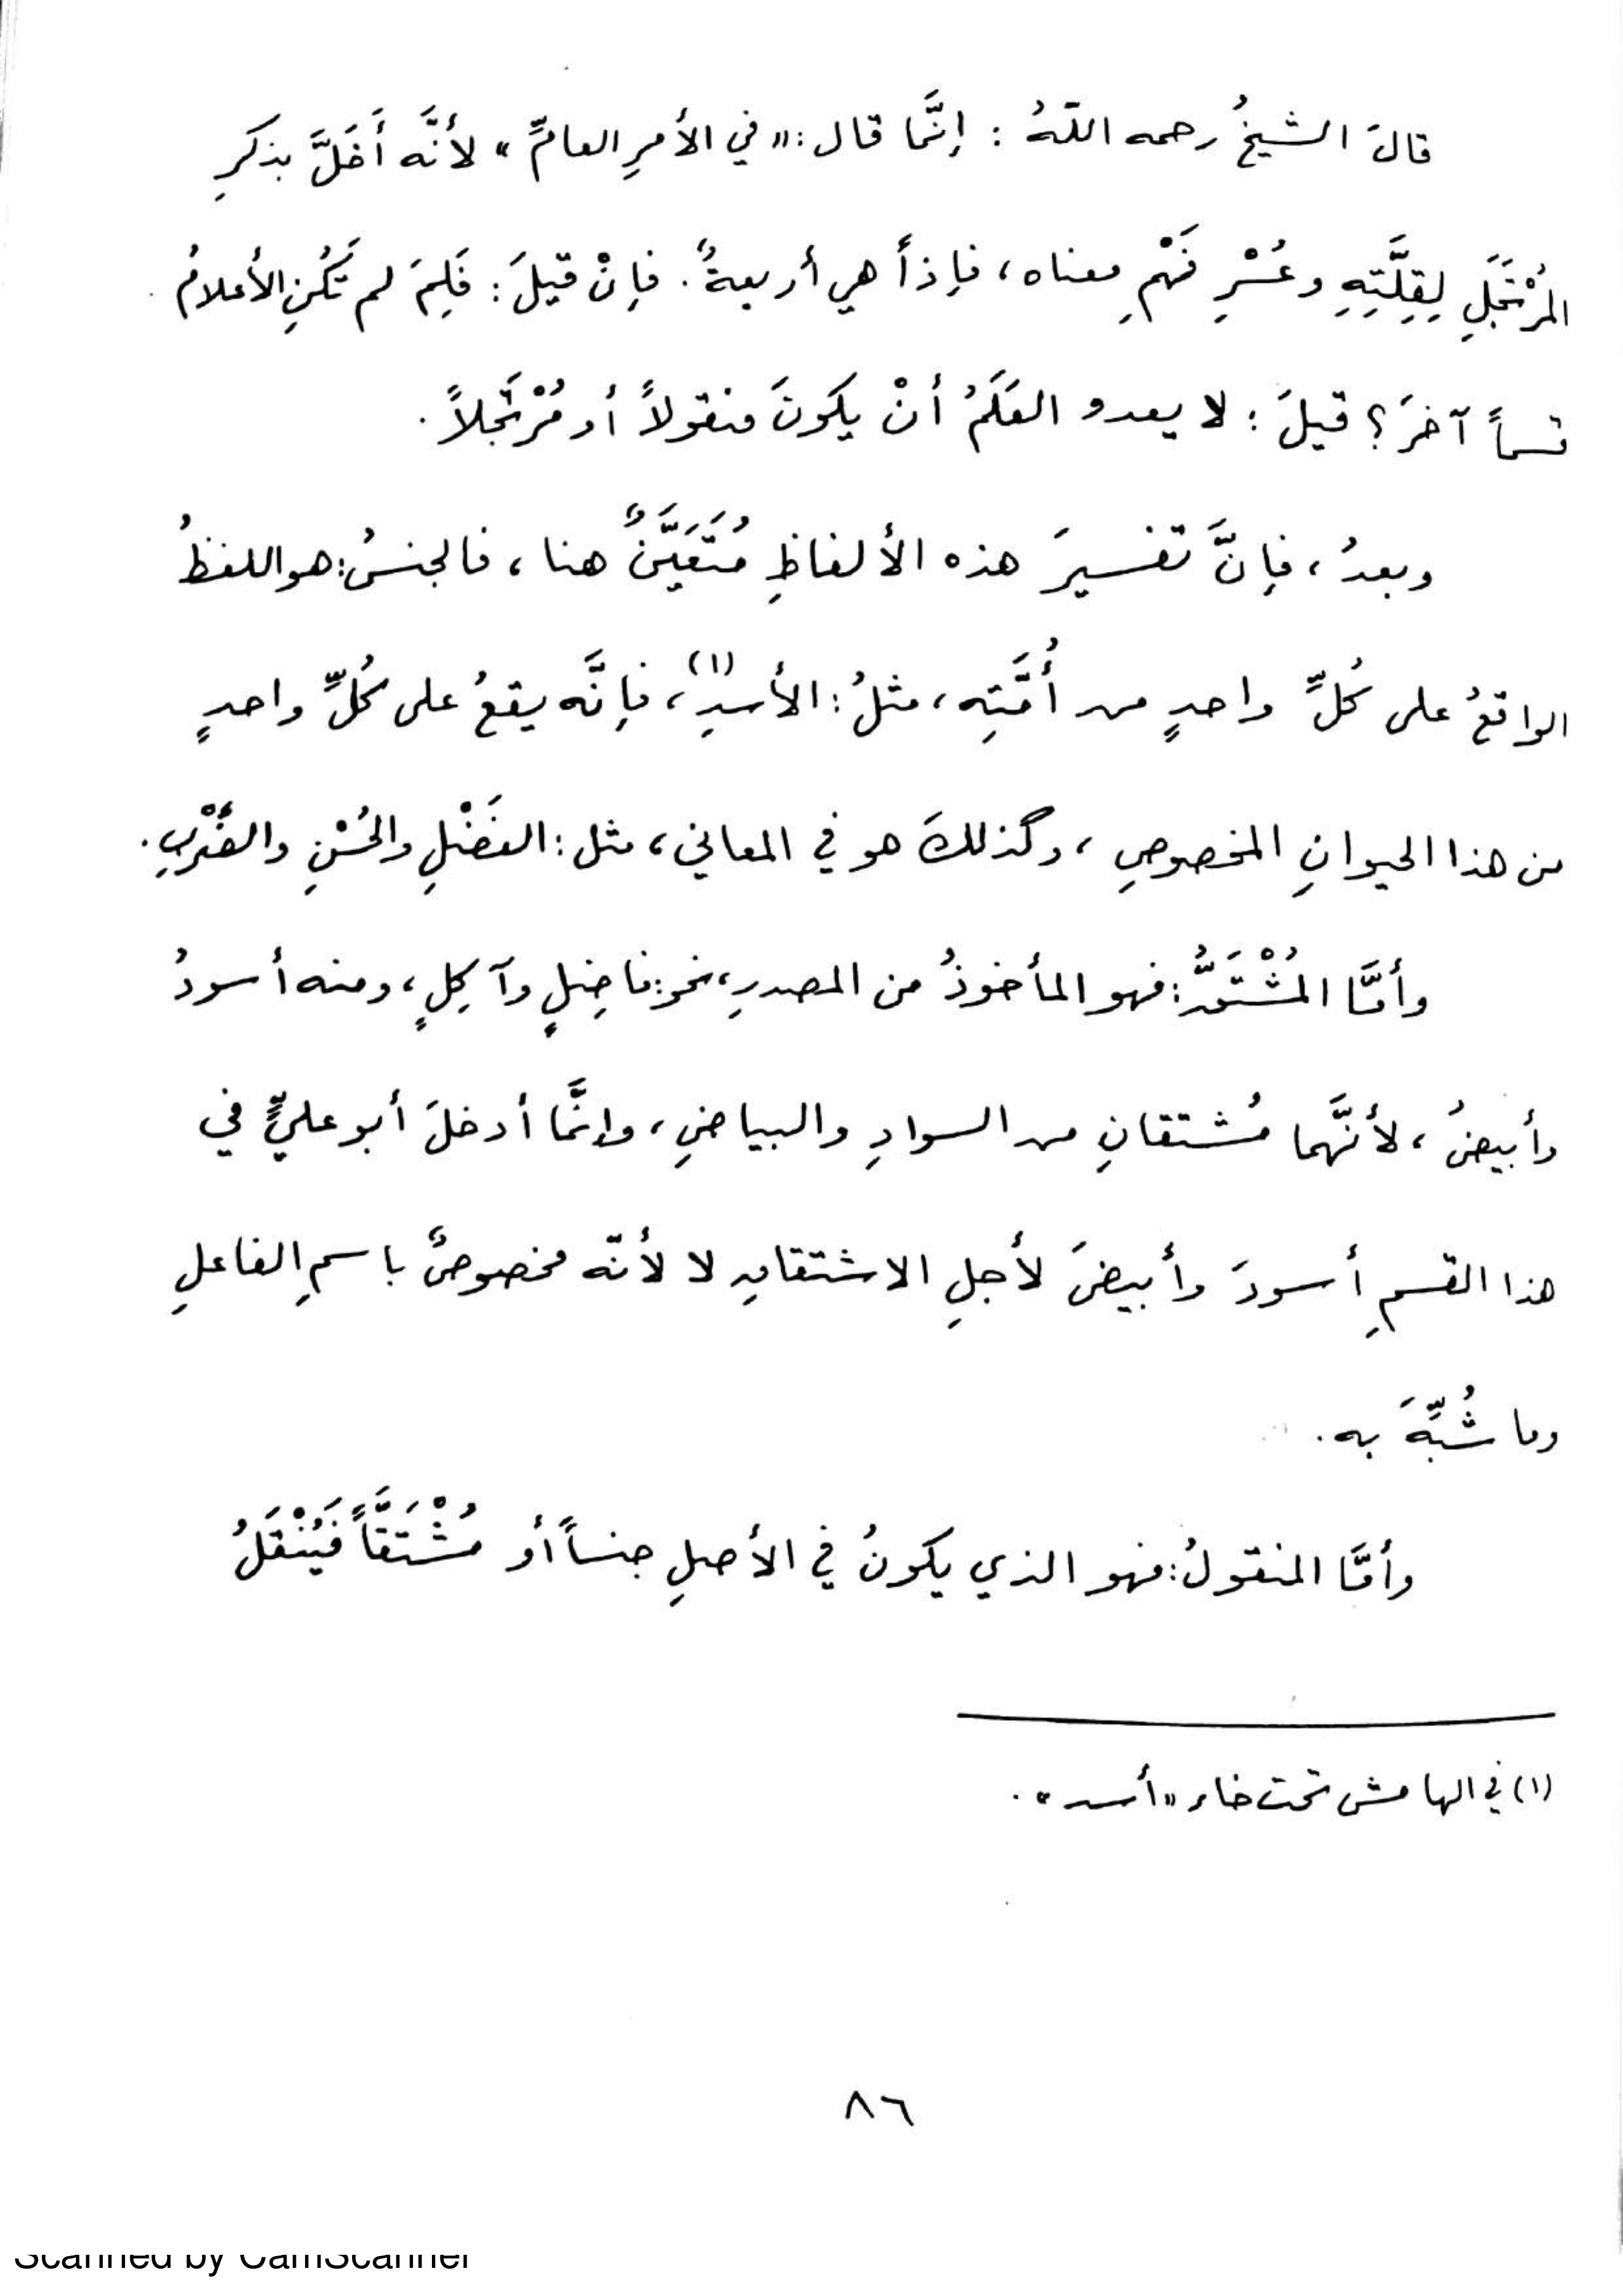 قالَ الشيخُ رحمه اللّهُ : إنَّما قال : «في الأمرِ العامِّ» لأنَّه أَخَلَّ بذكرِ
المُرْتَجَلِ لِقِلَّتِهِ وعُسْرِ فَهْمِ معناه، فإذاً هي أربعةٌ. فإنْ قيلَ : فَلِمَ لم تَكُنِ الأعلامُ
قسماً آخرَ؟ قيلَ : لا يعدو العَلَمُ أنْ يكونَ منقولاً أو مُرْتَجَلاً.
وبعدُ، فإنَّ تفسيرَ هذه الألفاظِ مُتَعَيَّنٌ هنا، فالجنسُ: هو اللفظُ
الواقعُ على كُلِّ واحدٍ من أُمَّتِه، مثلُ : الأسدِ(١)، فإنَّه يقعُ على كُلِّ واحدٍ
من هذا الحيوانِ المخصوصِ، وكذلكَ هو في المعاني، مثل : الفَضْلِ والحُسْنِ والضَّرْبِ.
وأمَّا المُشْتَقُّ: فهو المأخوذُ من المصدرِ، نحو: فاضِلٍ وآكِلٍ، ومنه أسودُ
وأبيضُ، لأنَّهما مُشتقانِ من السوادِ والبياضِ، وإنَّما أدخلَ أبو عليٍّ في
هذا القسمِ أسودَ وأبيضَ لأجلِ الاشتقاقِ لا لأنّه مخصوصٌ باسمِ الفاعلِ
وما شُبِّهَ به.
وأمَّا المنقولُ: فهو الذي يكونُ في الأصلِ جنساً أو مُشْتَقَّاً فَيُنْقَلُ
(١) في الهامش تحت خاء «أسد».
٨٦
Scanned by CamScanner